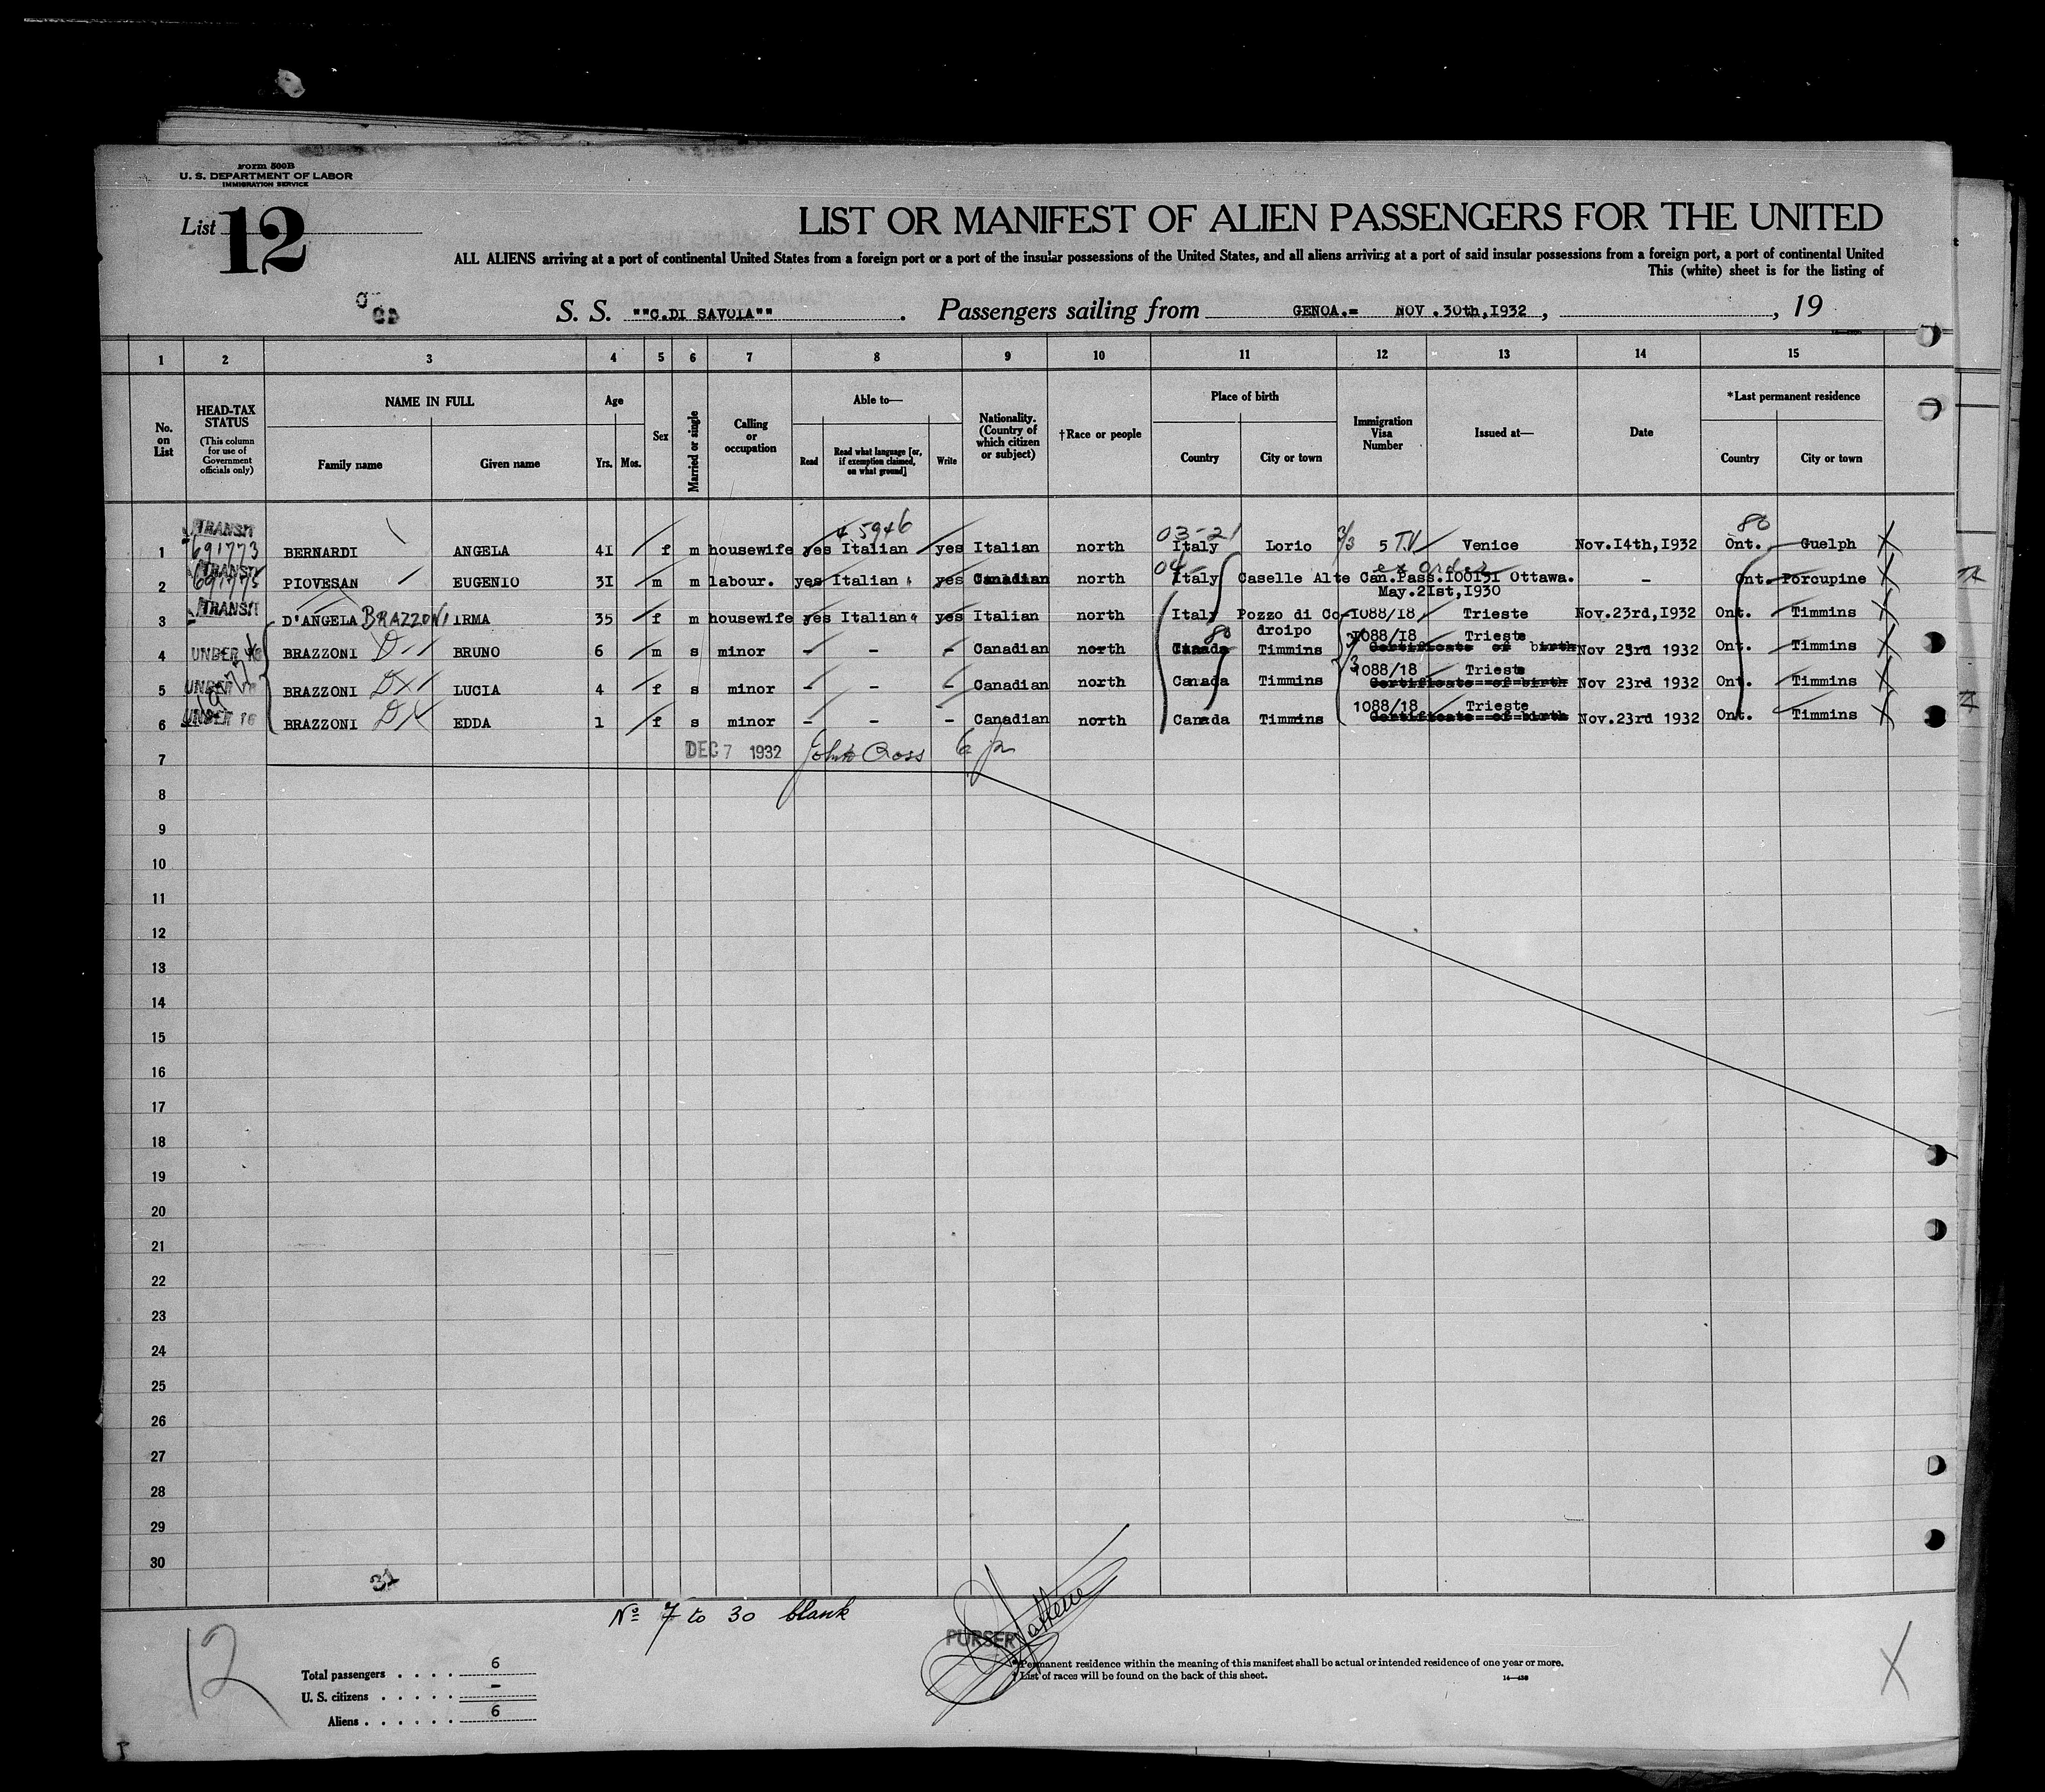 Form 500B
U. S. DEPARTMENT OF LABOR
IMMIGRATION SERVICE
List 12
LIST OR MANIFEST OF ALIEN PASSENGERS FOR THE UNITED
ALL ALIENS arriving at a port of continental United States from a foreign port or a port of the insular possessions of the United States, and all aliens arriving at a port of said insular possessions from a foreign port, a port of continental United
This (white) sheet is for the listing of
S. S. ""C.DI SAVOIA"" . Passengers sailing from GENOA.= NOV .30th,I932 , , 19
1 2 3 4 5 6 7 8 9 10 11 12 13 14 15
No. on List
HEAD-TAX STATUS (This column for use of Government officials only)
NAME IN FULL
Family name Given name
Age
Yrs. Mos.
Sex
Married or single
Calling or occupation
Able to—
Read Read what language [or, if exemption claimed, on what ground] Write
Nationality. (Country of which citizen or subject)
†Race or people
Place of birth
Country City or town
Immigration Visa Number
Issued at—
Date
*Last permanent residence
Country City or town
TRANSIT 45946 03-21 80
1 691773 BERNARDI ANGELA 4I f m housewife yes Italian yes Italian north Italy Lorio 5 T.V. Venice Nov.I4th,I932 Ont. Guelph X
TRANSIT 04 ex order
2 691775 PIOVESAN EUGENIO 3I m m labour. yes Italian yes Canadian north Italy Caselle Alte Can.Pass.I00I5I Ottawa. - Ont. Porcupine X
May.2Ist,I930
TRANSIT
3 D'ANGELA BRAZZONI IRMA 35 f m housewife yes Italian yes Italian north Italy Pozzo di Co- I088/I8 Trieste Nov.23rd,I932 Ont. Timmins X
80 droipo I088/I8 Trieste
4 UNDER 16 BRAZZONI BRUNO 6 m s minor - - - Canadian north Canada Timmins Certificate of birth Nov 23rd 1932 Ont. Timmins X
1088/18 Trieste
5 UNDER 16 BRAZZONI LUCIA 4 f s minor - - - Canadian north Canada Timmins Certificate of birth Nov 23rd 1932 Ont. Timmins X
1088/18 Trieste
6 UNDER 16 BRAZZONI EDDA 1 f s minor - - - Canadian north Canada Timmins Certificate of birth Nov.23rd 1932 Ont. Timmins X
7 DEC 7 1932 John Cross
8
9
10
11
12
13
14
15
16
17
18
19
20
21
22
23
24
25
26
27
28
29
30
Nº 7 to 30 blank
12
PURSER
X
Total passengers . . . . 6
U. S. citizens . . . . . -
Aliens . . . . . . 6
* Permanent residence within the meaning of this manifest shall be actual or intended residence of one year or more.
† List of races will be found on the back of this sheet.